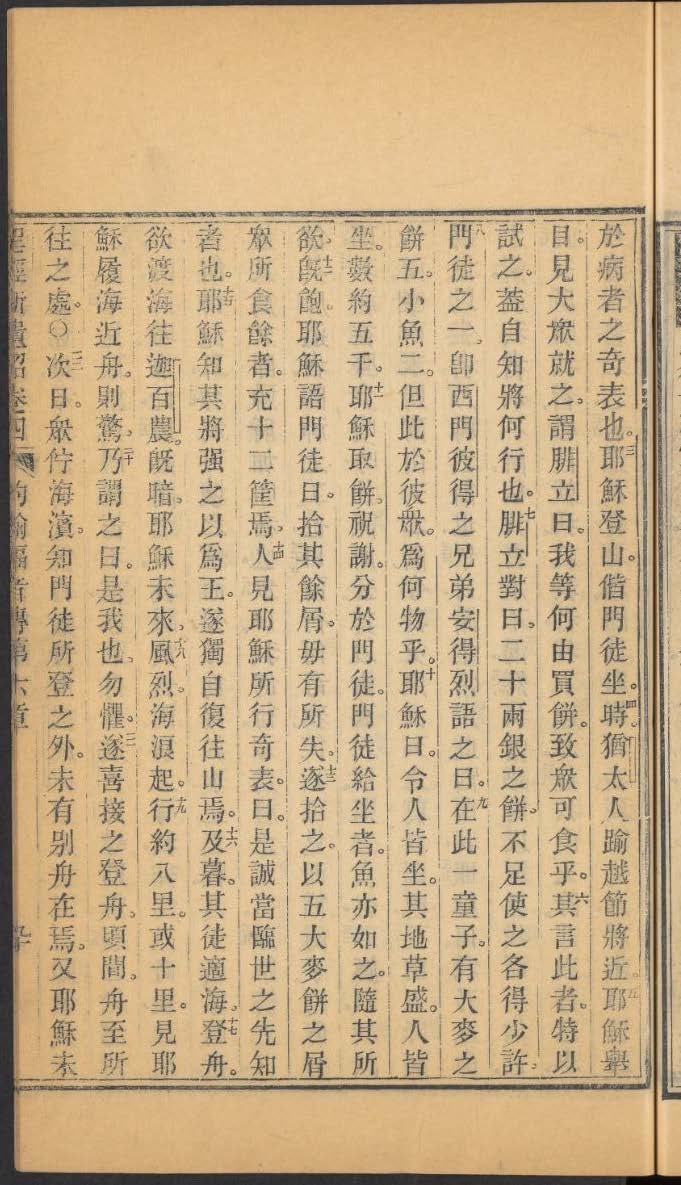 於病者之奇表也。三耶穌登山。偕門徒坐。四時猶太人踰越節將近。五耶穌舉
目。見大眾就之。謂腓立曰。我等何由買餅。致眾可食乎。六其言此者。特以
試之。葢自知將何行也。七腓立對曰。二十兩銀之餅。不足使之各得少許。
八門徒之一。卽西門彼得之兄弟安得烈語之曰。九在此一童子。有大麥之
餅五。小魚二。但此於彼眾。爲何物乎。十耶穌曰。令人皆坐。其地草盛。人皆
坐。數約五千。十一耶穌取餅。祝謝。分於門徒。門徒給坐者。魚亦如之。隨其所
欲。十二旣飽。耶穌語門徒曰。拾其餘屑。毋有所失。十三遂拾之。以五大麥餅之屑
眾所食餘者。充十二筐焉。十四人見耶穌所行奇表。曰。是誠當臨世之先知
者也。十五耶穌知其將强之以爲王。遂獨自復往山焉。十六及暮。其徒適海。十七登舟。
欲渡海往迦百農。旣暗。耶穌未來。十八風烈。海浪起。十九行約八里。或十里。見耶
穌履海近舟。則驚。二十乃謂之曰。是我也。勿懼。二一遂喜接之登舟。頃間。舟至所
往之處。〇二二次日。眾佇海濱。知門徒所登之外。未有別舟在焉。又耶穌未
約翰福音傳第六章